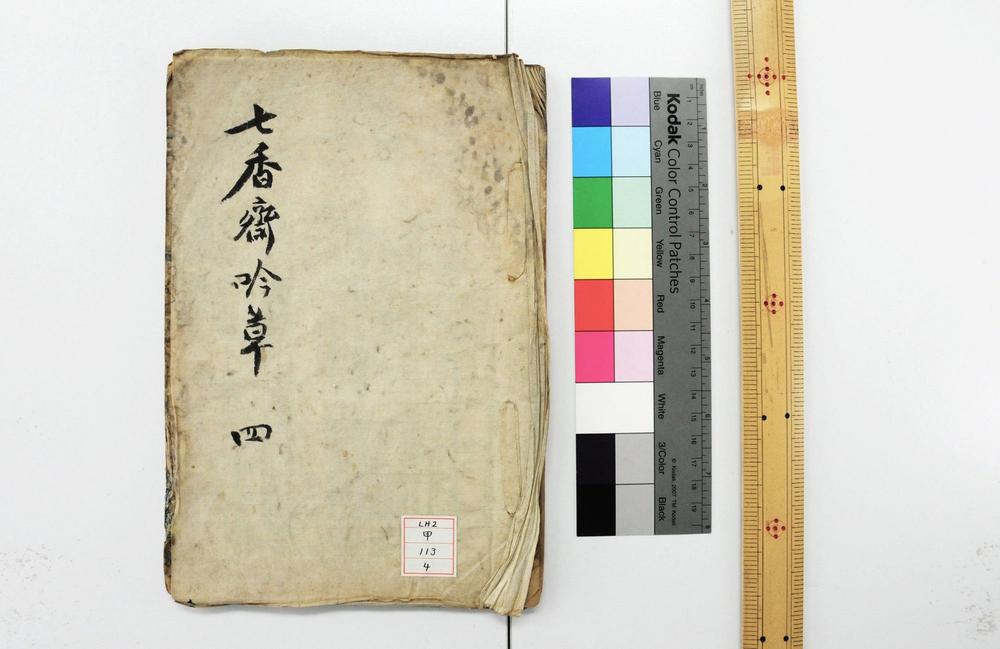 七香齋吟草 四
LH2
甲
113
4
Kodak Color Control Patches
Blue
Cyan
Green
Yellow
Red
Magenta
White
3/Color
Black
© Kodak, 2007 TM: Kodak
1 2 3 4 5 6 7 8 9 10 11 12 13 14 15 16 17 18 19